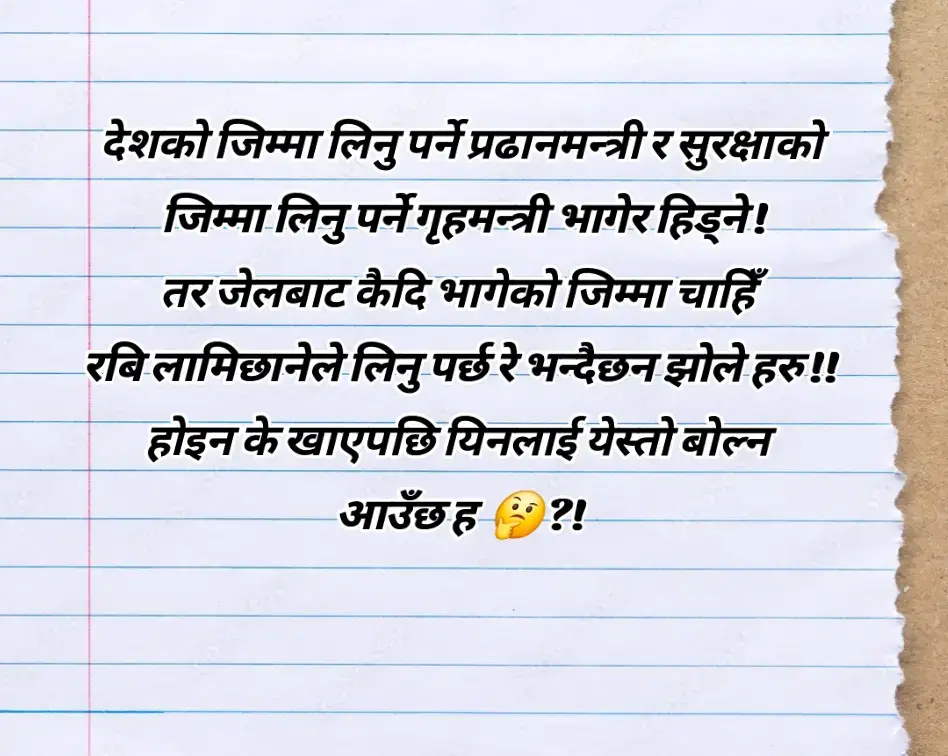 देशको जिम्मा लिनु पर्ने प्रढानमन्त्री र सुरक्षाको
जिम्मा लिनु पर्ने गृहमन्त्री भागेर हिड्ने!
तर जेलबाट कैदि भागेको जिम्मा चाहिँ
रबि लामिछानेले लिनु पर्छ रे भन्दैछन झोले हरु!!
होइन के खाएपछि यिनलाई येस्तो बोल्न
आउँछ ह 🤔?!